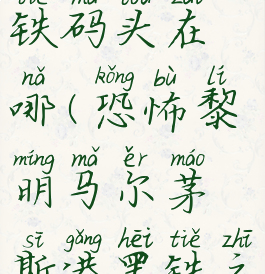 tiě mǎ tóu zài
铁码头在
nǎ kǒng bù lí
哪(恐怖黎
míng mǎ ěr máo
明马尔茅
sī gǎng hēi tiě zhī
斯港黑铁之